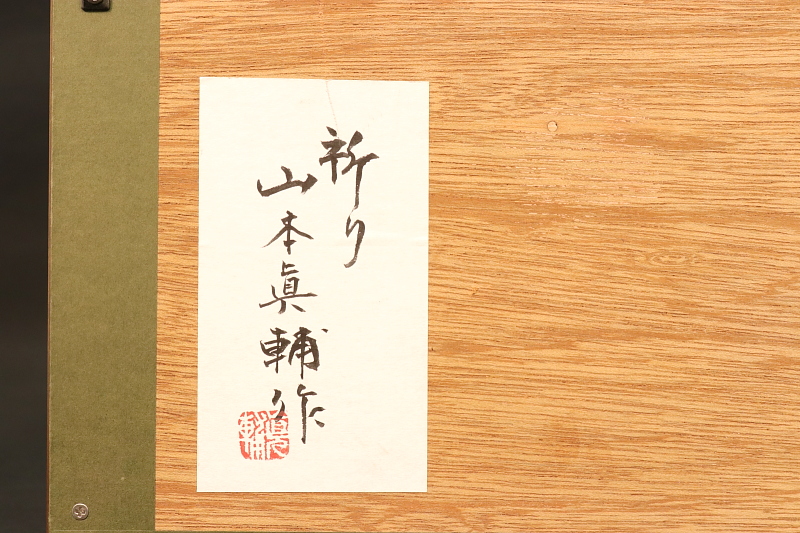 祈り
山本眞輔作
眞輔